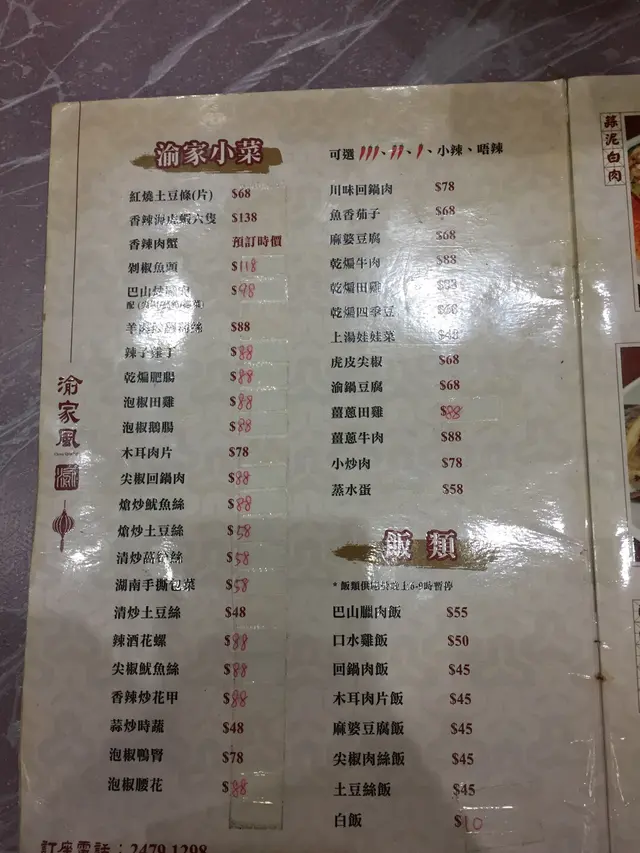 渝家小菜
紅燒土豆條(片) $68
香辣海虎蝦六隻 $138
香辣肉蟹 預訂時價
剁椒魚頭 $118
巴山 $98
羊肉
$88
辣子雞丁 $88
乾煸肥腸 $88
泡椒田雞 $88
泡椒鵝腸 $88
木耳肉片 $78
尖椒回鍋肉 $88
熗炒魷魚絲 $88
熗炒土豆絲 $58
清炒萵筍絲 $58
湖南手撕包菜 $58
清炒土豆絲 $48
辣酒花螺 $88
尖椒魷魚絲 $88
香辣炒花甲 $88
蒜炒時蔬 $48
泡椒鴨腎 $78
泡椒腰花 $88
訂座電話：2479 1298
可選 、 、 、小辣、唔辣
川味回鍋肉 $78
魚香茄子 $68
麻婆豆腐 $68
乾煸牛肉 $88
乾煸田雞
乾煸四季豆 $68
上湯娃娃菜 $48
虎皮尖椒 $68
渝鍋豆腐 $68
薑蔥田雞 $88
薑蔥牛肉 $88
小炒肉 $78
蒸水蛋 $58
飯類
* 飯類供 晚上6-9時暫停
巴山臘肉飯 $55
口水雞飯 $50
回鍋肉飯 $45
木耳肉片飯 $45
麻婆豆腐飯 $45
尖椒肉絲飯 $45
土豆絲飯 $45
白飯 $10
渝家風
蒜泥白肉